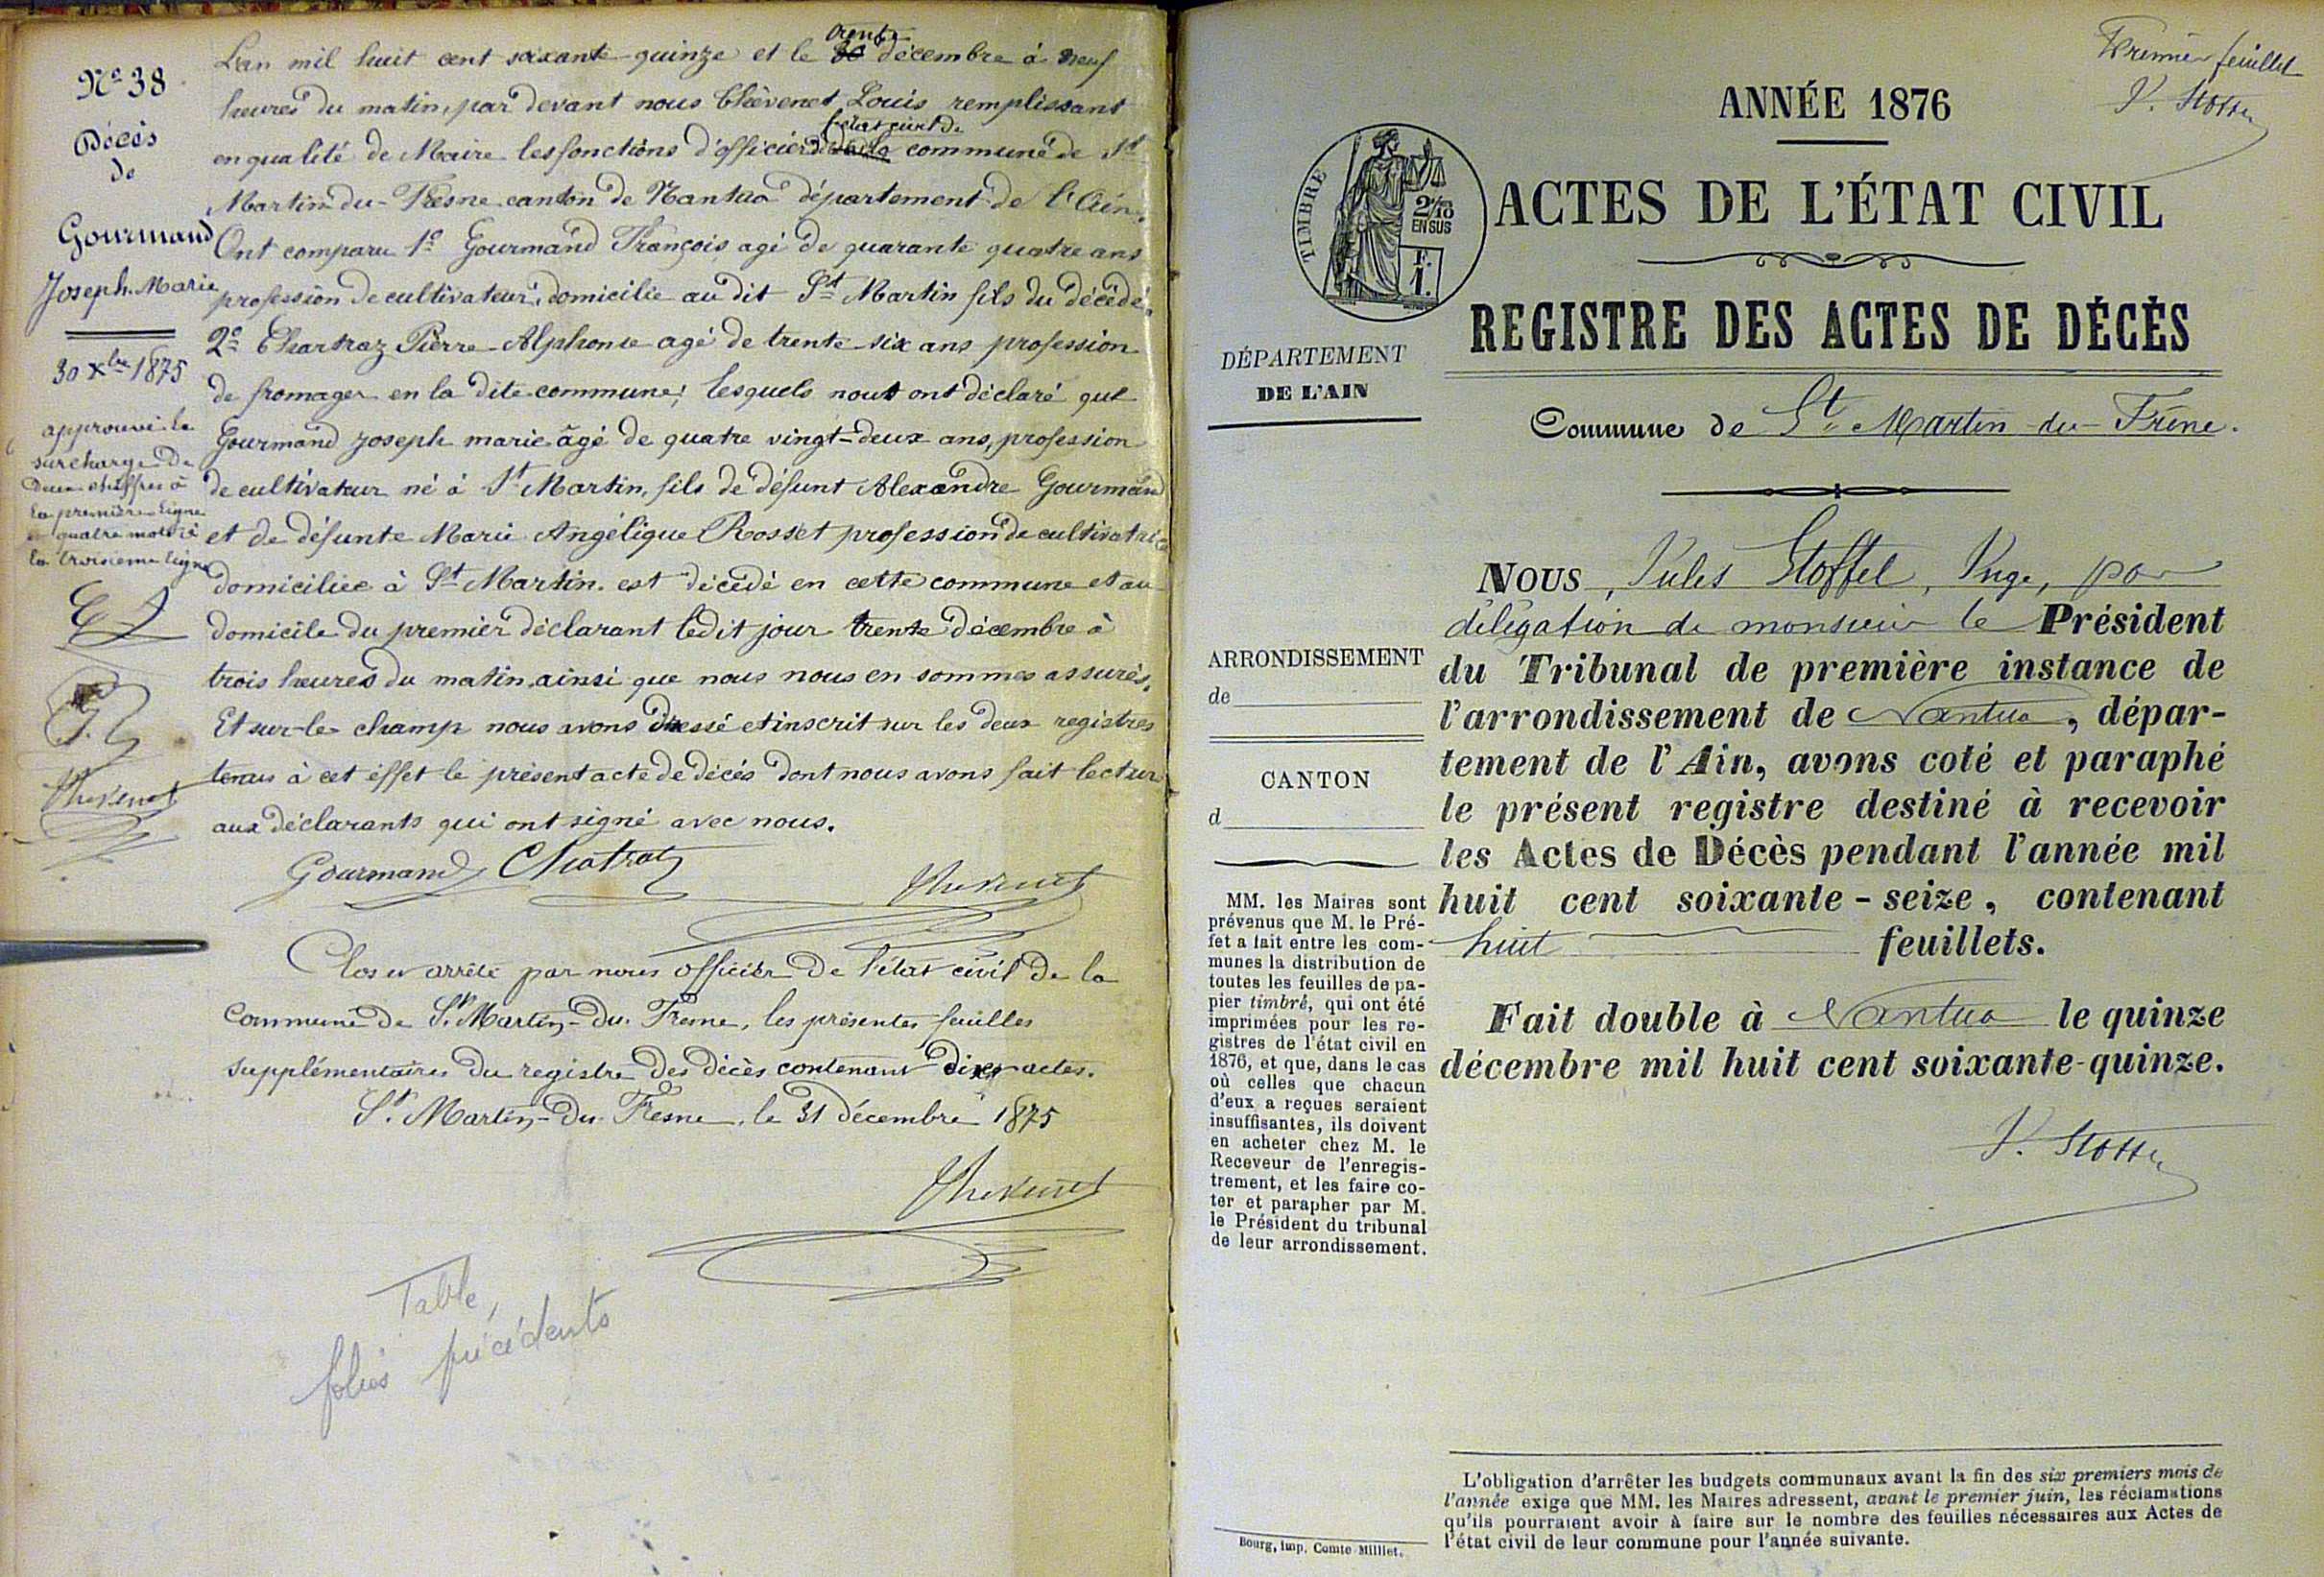 N° 38
Décès
de
Gourmand
Joseph Marie
30 Xbre 1875
approuvé la
surcharge de
deux chiffres à
la première ligne
quatre mots à
la troisième ligne
Thevenet
L'an mil huit cent soixante-quinze et le trente décembre à neuf
heures du matin, par devant nous Thèvenet Louis remplissant
en qualité de Maire les fonctions d'officier de l'état civil de commune de St
Martin-du-Fresne canton de Nantua département de l'Ain.
Ont comparu 1° Gourmand François agé de quarante quatre ans
profession de cultivateur, domicilié au dit St Martin fils du décédé.
2° Chartraz Pierre-Alphonse agé de trente-six ans profession
de fromager en la dite commune; lesquels nous ont déclaré que
Gourmand Joseph marie âgé de quatre vingt-deux ans, profession
de cultivateur né à St Martin, fils de défunt Alexandre Gourmand
et de défunte Marie Angélique Rosset profession de cultivatrice
domiciliée à St Martin. est décédé en cette commune et au
domicile du premier déclarant ledit jour trente décembre à
trois heures du matin, ainsi que nous nous en sommes assurés.
Et sur-le-champ nous avons dressé et inscrit sur les deux registres
tenus à cet éffet le présent acte de décés dont nous avons fait lecture
aux déclarants qui ont signé avec nous.
Gourmand Chatraz Thevenet
Clos et arrêté par nous officier de l'état civil de la
Commune de St Martin-du-Fresne, les présentes feuilles
supplémentaires du registre des décès contenant dix actes.
St Martin-du-Fresne, le 31 décembre 1875
Thevenet
Table,
folios précédents
Premier feuillet
J. Stoffel
ANNÉE 1876
TIMBRE
2/10
EN SUS
F.
1.
ACTES DE L'ÉTAT CIVIL
REGISTRE DES ACTES DE DÉCÈS
DÉPARTEMENT
DE L'AIN
Commune de St Martin-du-Frêne.
NOUS, Jules Stoffel, Juge, par
délégation de monsieur le Président
du Tribunal de première instance de
l'arrondissement de Nantua, dépar-
tement de l'Ain, avons coté et paraphé
le présent registre destiné à recevoir
les Actes de Décès pendant l'année mil
huit cent soixante-seize, contenant
huit feuillets.
Fait double à Nantua le quinze
décembre mil huit cent soixante-quinze.
J. Stoffel
ARRONDISSEMENT
de
CANTON
d
MM. les Maires sont
prévenus que M. le Pré-
fet a fait entre les com-
munes la distribution de
toutes les feuilles de pa-
pier timbré, qui ont été
imprimées pour les re-
gistres de l'état civil en
1876, et que, dans le cas
où celles que chacun
d'eux a reçues seraient
insuffisantes, ils doivent
en acheter chez M. le
Receveur de l'enregis-
trement, et les faire co-
ter et parapher par M.
le Président du tribunal
de leur arrondissement.
Bourg, imp. Comte-Milliet.
L'obligation d'arrêter les budgets communaux avant la fin des six premiers mois de
l'année exige que MM. les Maires adressent, avant le premier juin, les réclamations
qu'ils pourraient avoir à faire sur le nombre des feuilles nécessaires aux Actes de
l'état civil de leur commune pour l'année suivante.